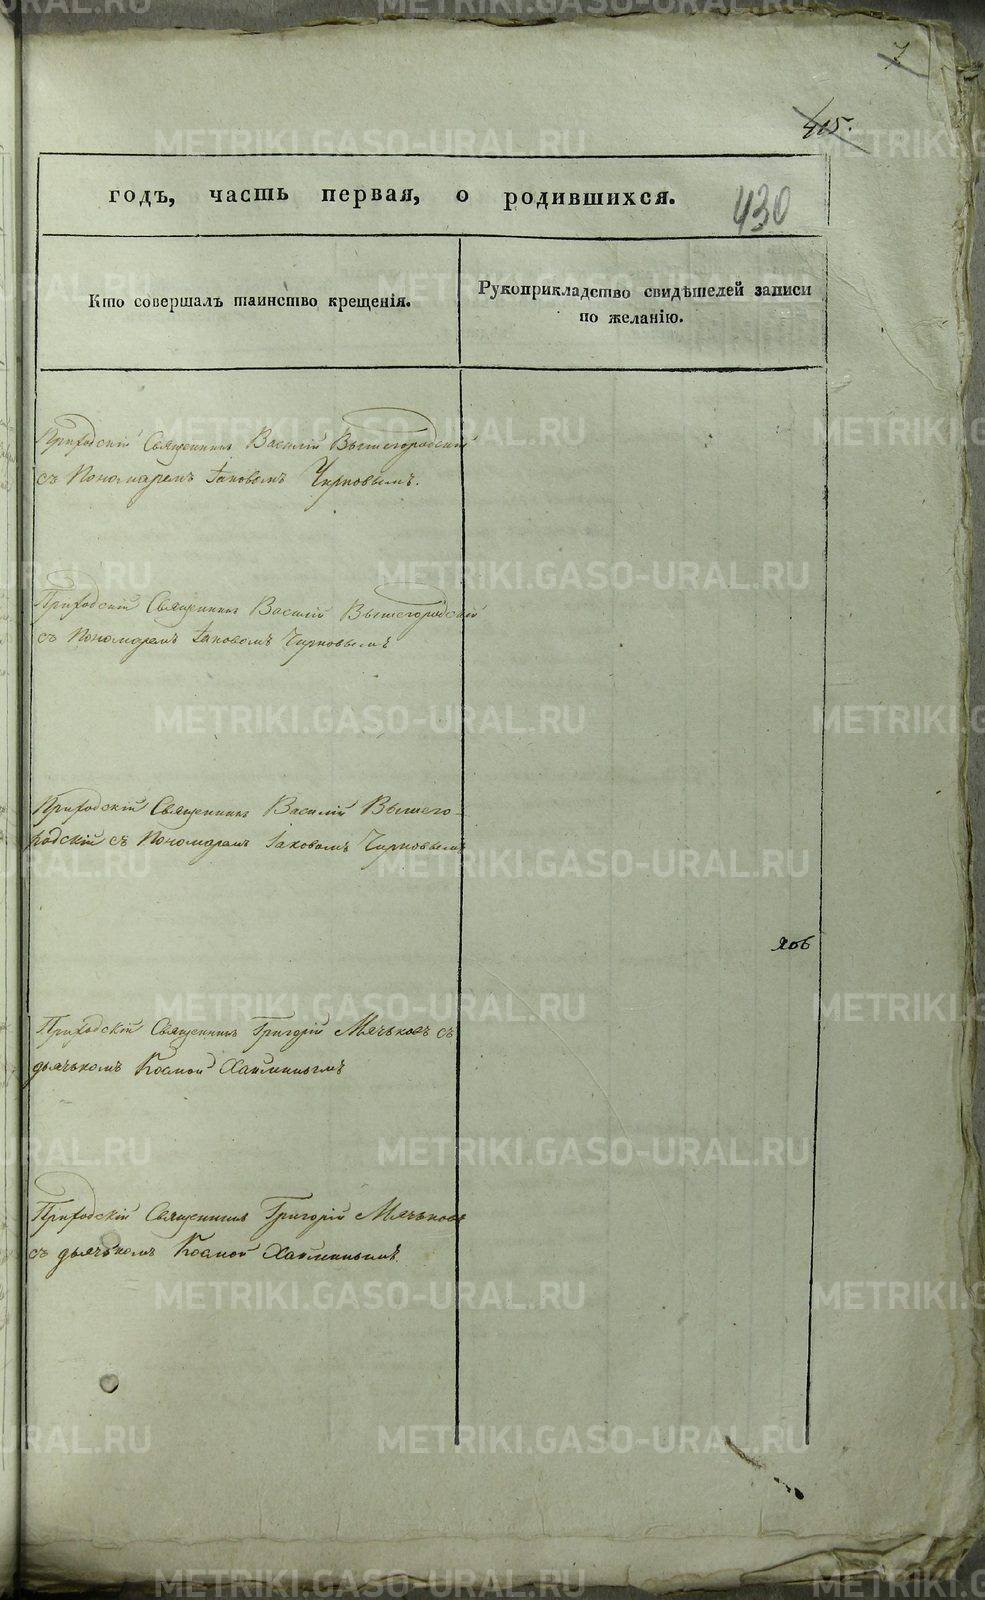 7
415.
годъ, часть первая, о родившихся.
430
Кто совершалъ таинство крещенія.
Рукоприкладство свидѣтелей записи
по желанію.
Приходскій Священникъ Василій Вышегородскій
съ Пономаремъ Іаковомъ Чирковымъ.
Приходскій Священникъ Василій Вышегородскій
съ Пономаремъ Іаковомъ Чирковымъ
Приходскій Священникъ Василій Вышего-
родскій съ Пономаремъ Іаковомъ Чирковымъ
Приходскій Священникъ Григорій Мячьковъ съ
дьячькомъ Космой
Приходскій Священникъ Григорій Мячьковъ
съ дьячькомъ Космой
METRIKI.GASO-URAL.RU